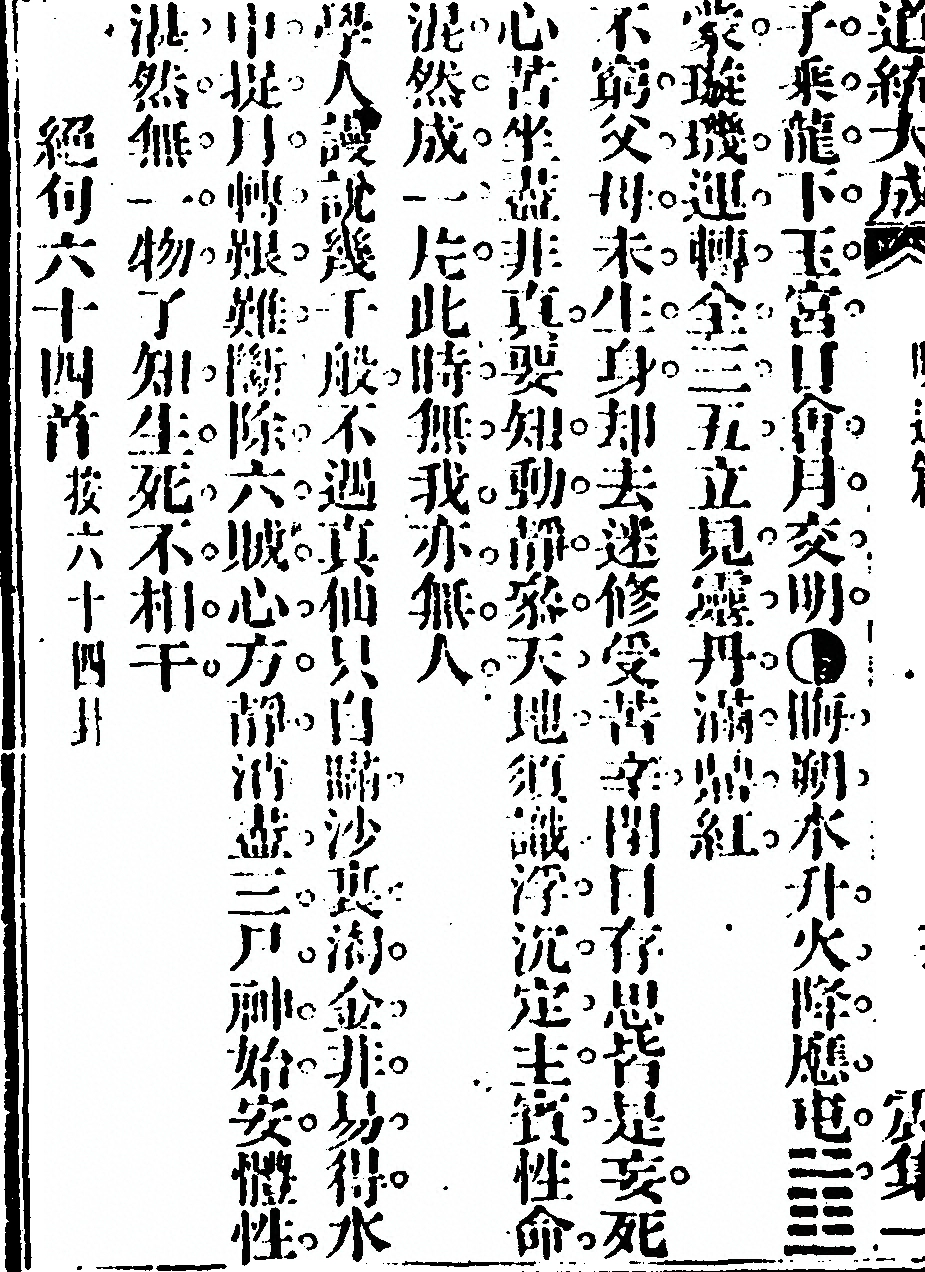 道統大成
子乘龍下玉宮日會月交明晦朔水升火降應屯
蒙璇璣運轉全三五立見靈丹滿鼎紅
不窮父母未生身却去迷修受苦辛閉目存思皆是妄死
心苦坐盡非真要知動靜叅天地須識浮沉定主賓性命
混然成一片此時無我亦無人
學人謾說幾千般不遇真仙只自瞞沙裏淘金非易得水
中捉月轉艱難斷除六賊心方靜消盡三尸神始安慧性
湛然無一物了知生死不相干
絕句六十四首按六十四卦